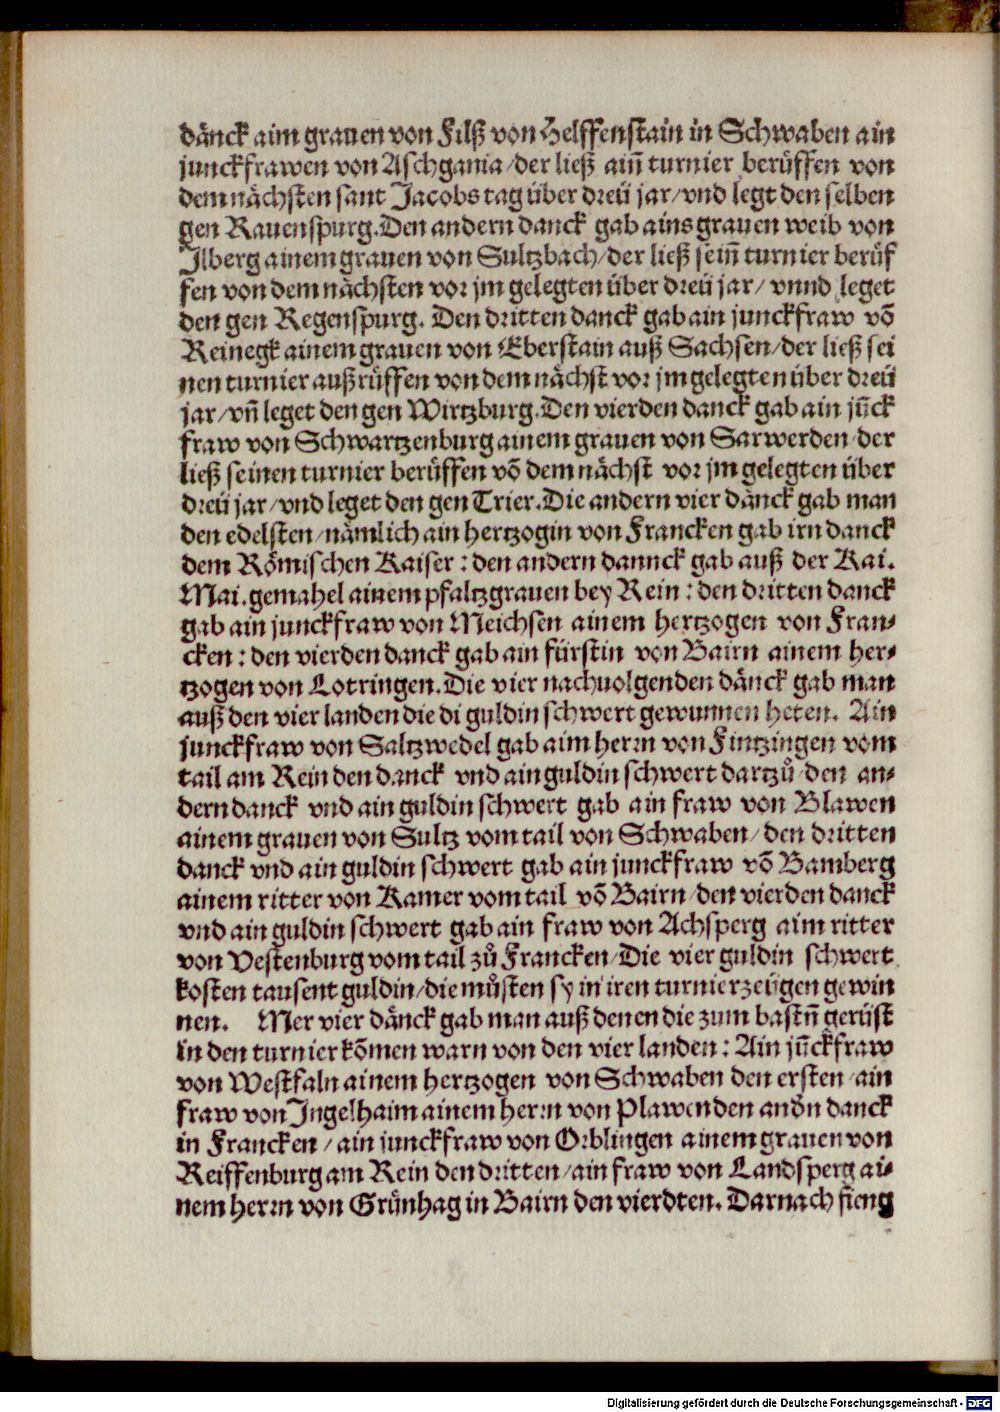 dänck aim grauen von Filß von Helffenstain in Schwaben ain
junckfrawen von Aschgania/der ließ ain̄ turnier berüffen von
dem nächsten sant Jacobs tag über dreü jar/vnd legt den selben
gen Rauenspurg.Den andern danck gab ains grauen weib von
Jlberg ainem grauen von Sultzbach/der ließ sein̄ turnier berüf
fen von dem nächsten vor jm gelegten über dreü jar/ vnnd leget
den gen Regenspurg. Den dritten danck gab ain junckfraw vō
Reinegk ainem grauen von Eberstain auß Sachsen/der ließ sei
nen turnier außrüffen von dem nächst vor jm gelegten über dreü
jar/vn̄ leget den gen Wirtzburg.Den vierden danck gab ain jūck
fraw von Schwartzenburg ainem grauen von Sarwerden/der
ließ seinen turnier berüffen vō dem nächst vor jm gelegten über
dreü jar/vnd leget den gen Trier.Die andern vier dänck gab man
den edelsten/nämlich ain hertzogin von Francken gab irn danck
dem Römischen Kaiser : den andern dannck gab auß der Kai.
Mai.gemahel ainem pfaltzgrauen bey Rein : den dritten danck
gab ain junckfraw von Meichsen ainem hertzogen von Fran-
cken : den vierden danck gab ain fürstin von Bairn ainem her-
tzogen von Lotringen.Die vier nachuolgenden dänck gab man
auß den vier landen die di guldin schwert gewunnen heten. Ain
junckfraw von Saltzwedel gab aim herrn von Fintzingen vom
tail am Rein den danck vnd ain guldin schwert dartzů/den an-
dern danck vnd ain guldin schwert gab ain fraw von Blawen
ainem grauen von Sultz vom tail von Schwaben/den dritten
danck vnd ain guldin schwert gab ain junckfraw vō Bamberg
ainem ritter von Kamer vom tail vō Bairn/den vierden danck
vnd ain guldin schwert gab ain fraw von Achsperg aim ritter
von Vestenburg vom tail zů Francken/Die vier guldin schwert
kosten tausent guldin/die můsten sy in iren turnierzeügen gewin
nen. Mer vier dänck gab man auß denen die zum bastn̄ gerüst
in den turnier kōmen warn von den vier landen : Ain jūckfraw
von Westfaln ainem hertzogen von Schwaben den ersten/ain
fraw von Jngelhaim ainem herrn von Plawen den anďn danck
in Francken/ain junckfraw von Orblingen ainem grauen von
Reiffenburg am Rein den dritten/ain fraw von Landsperg ai-
nem herrn von Grünhag in Bairn den vierdten. Darnach fieng
Digitalisierung gefördert durch die Deutsche Forschungsgemeinschaft - DFG